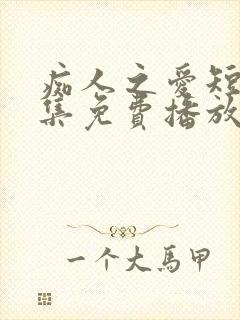 痴人之愛短
集免費播放
一个大馬甲